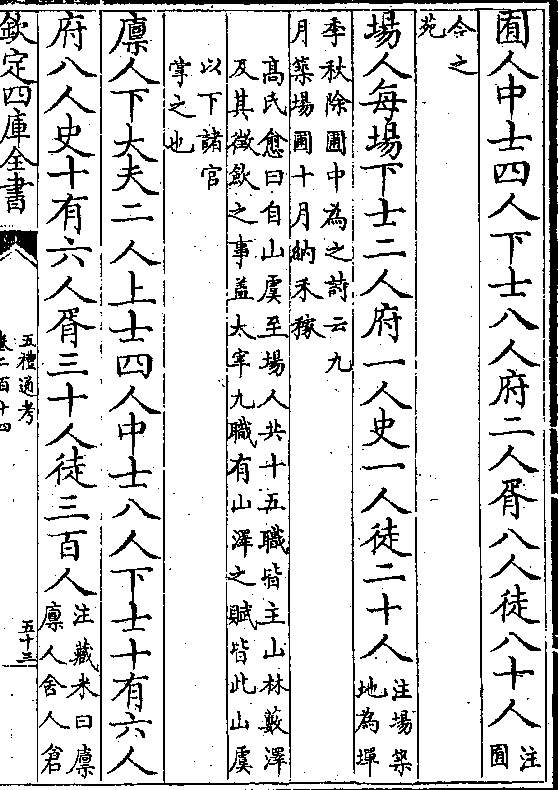 囿人中士四人下士八人府二人胥八人徒八十人注囿
今之
苑
場人每場下士二人府一人史一人徒二十人注場築
地為墠
季秋除圃中為之詩云九
月築場圃十月納禾稼
高氏愈曰自山虞至場人共十五職皆主山林藪澤
及其徵斂之事蓋太宰九職有山澤之賦皆此山虞
以下諸官
掌之也
廪人下大夫二人上士四人中士八人下士十有六人
府八人史十有六人胥三十人徒三百人注藏米曰廪
廪人舍人倉
欽定四庫全書
五禮通考
卷二百十四
五十三